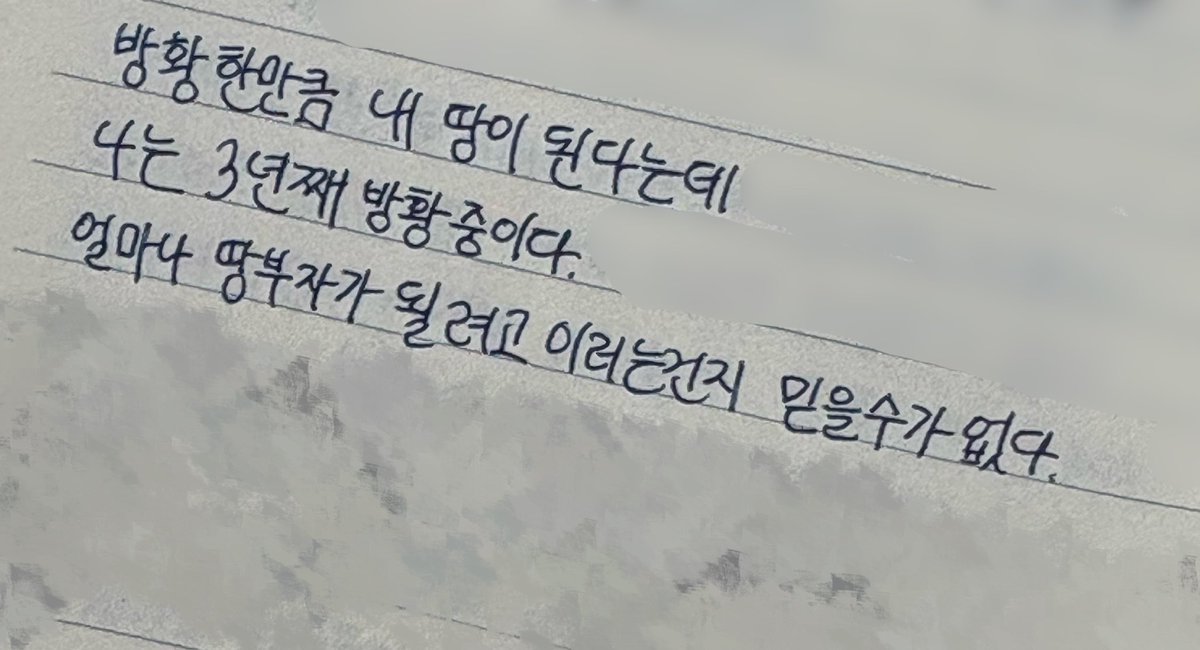 방황한만큼 내 땅이 된다는데
나는 3년째 방황중이다.
얼마나 땅부자가 될려고 이러는건지 믿을수가 없다.